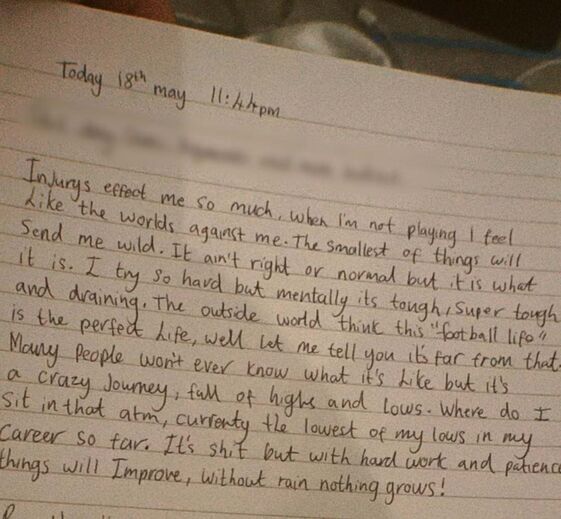 Today 18th may 11:44pm
Injurys effect me so much, when I'm not playing I feel
Like the worlds against me. The smallest of things will
Send me wild. It ain't right or normal but it is what
it is. I try so hard but mentally its tough, Super tough
and draining. The outside world think this "football life"
is the perfect Life, well let me tell you it's far from that.
Many people won't ever know what it's Like but it's
a crazy Journey, full of highs and lows. Where do I
Sit in that atm, currenty the lowest of my lows in my
Career so far. It's shit but with hard work and patience
things will Improve, without rain nothing grows!